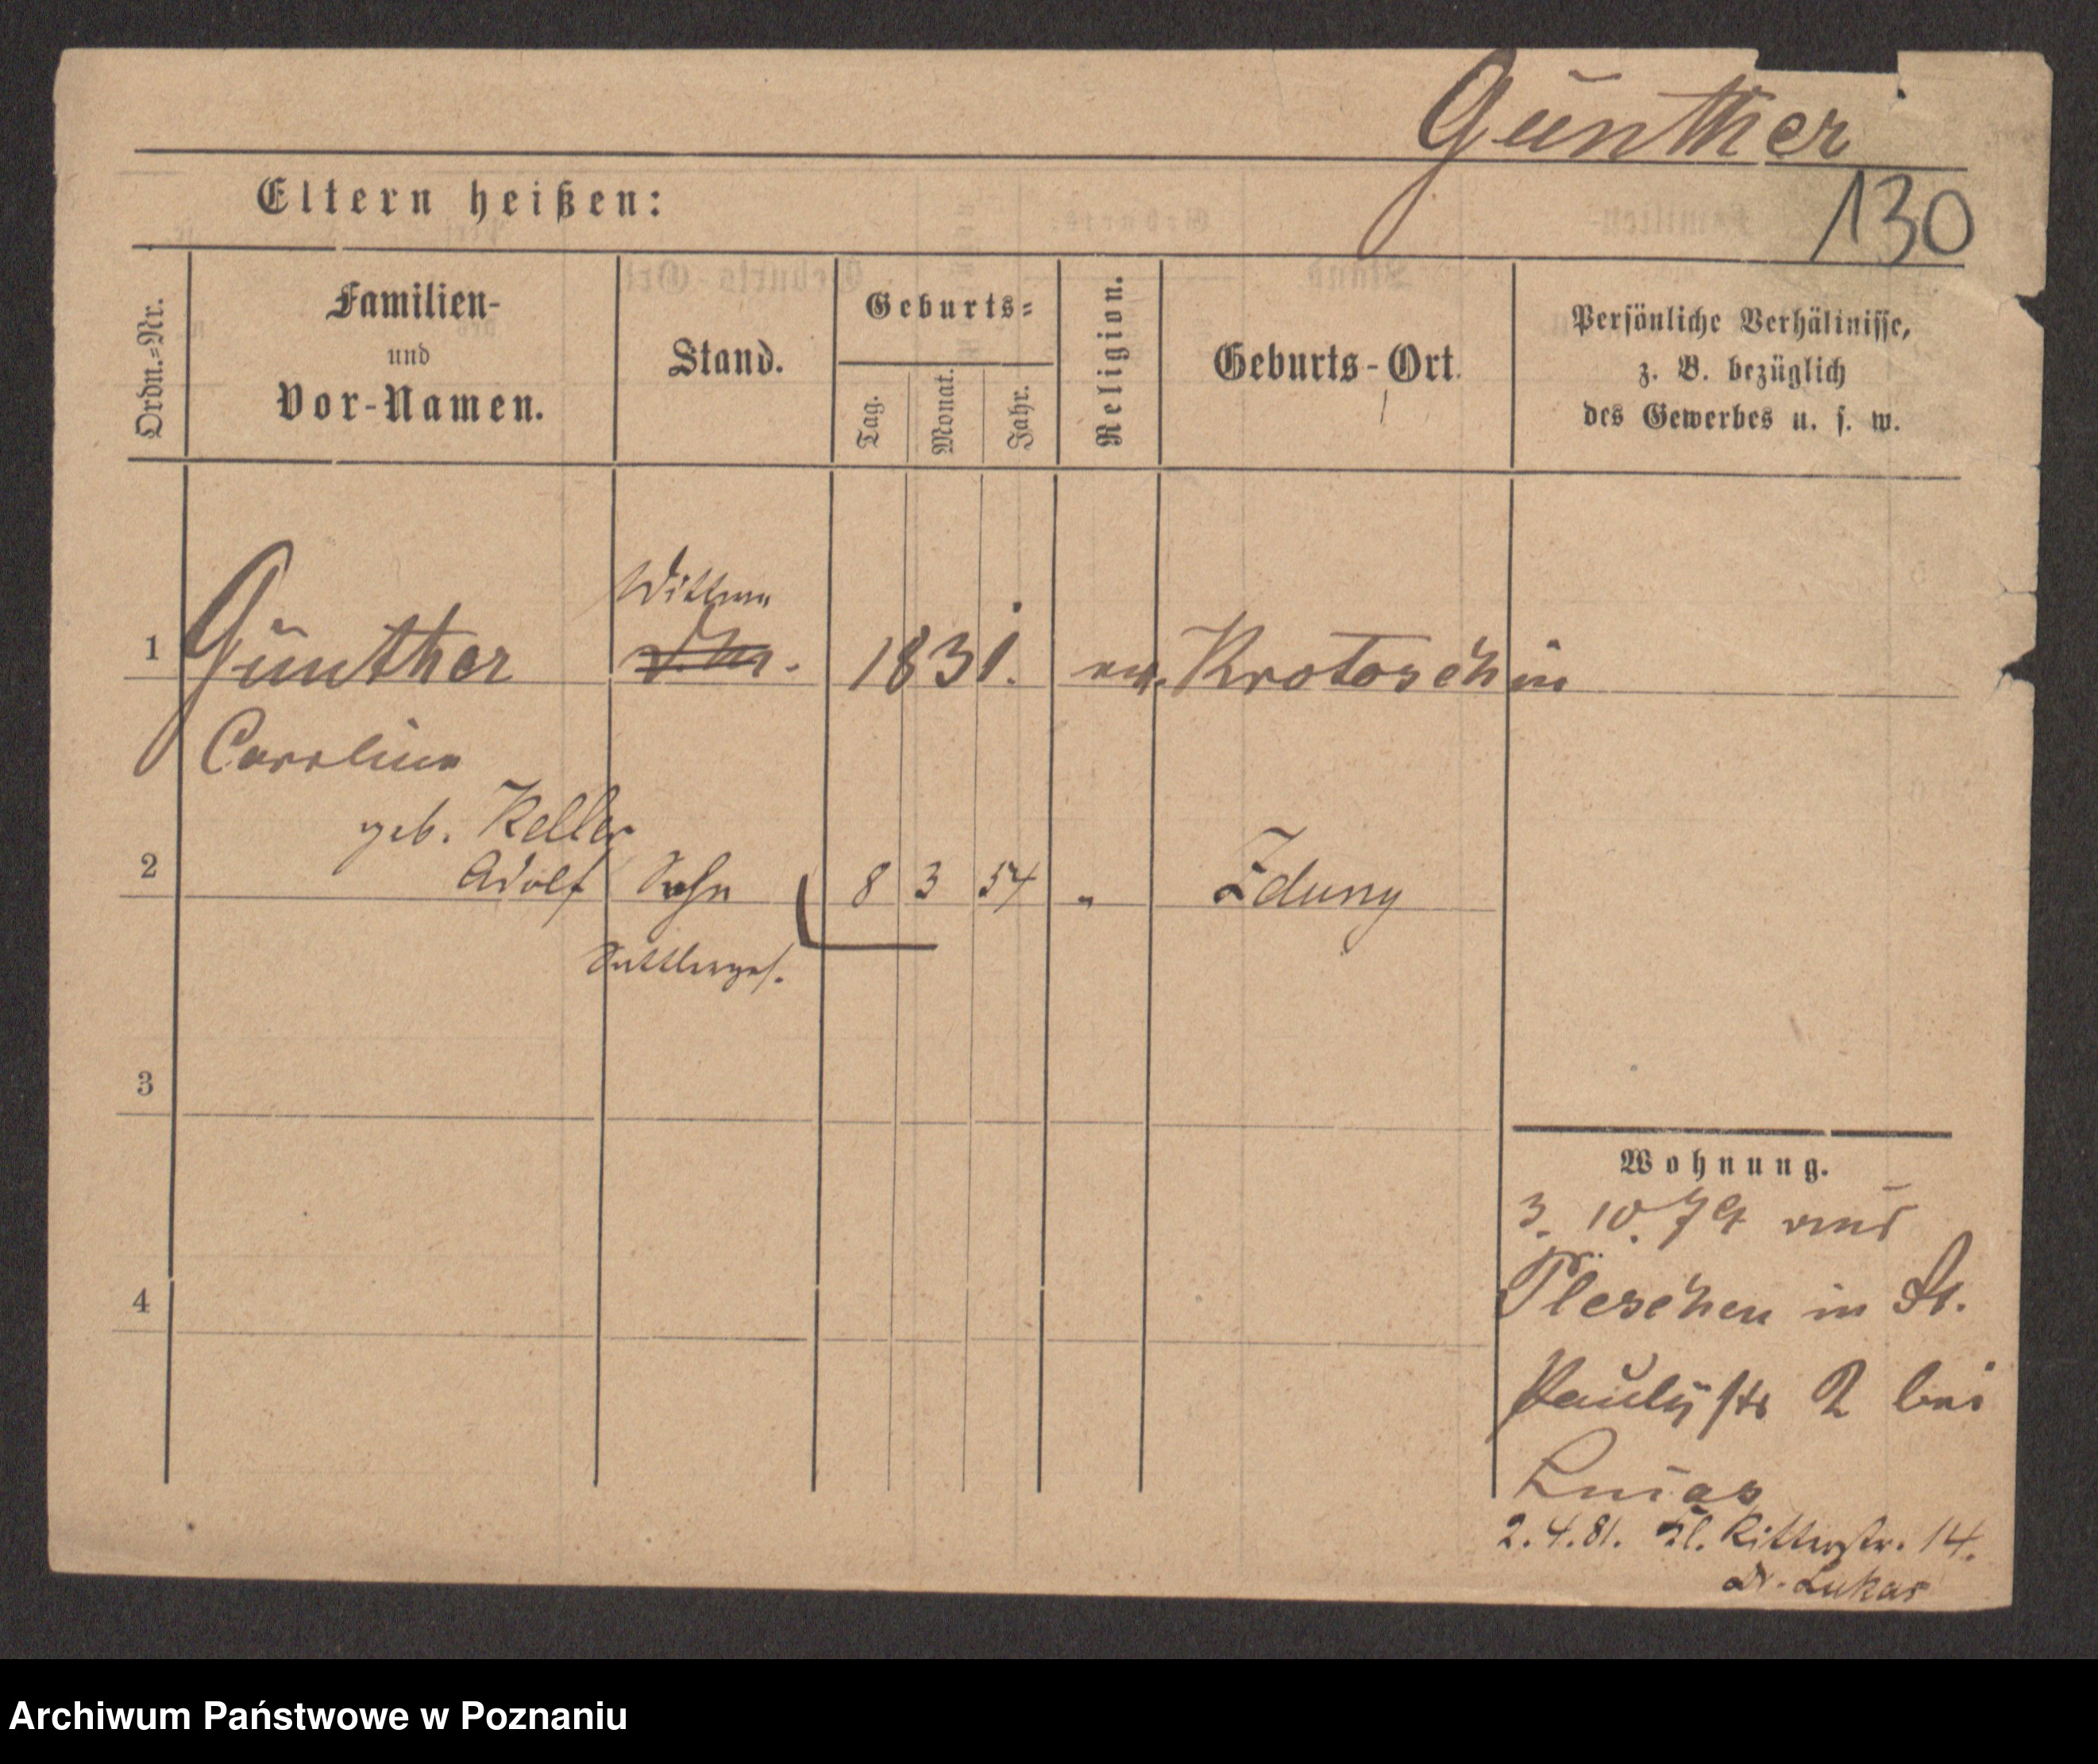 Günther
130
Eltern heißen:
Ordn.=Nr.
Familien-
und
Vor-Namen.
Stand.
Geburts=
Tag.
Monat.
Jahr.
Religion.
Geburts-Ort.
Persönliche Verhältnisse,
z. B. bezüglich
des Gewerbes u. s. w.
Wittwe
1 Günther 1831. ev. Krotoschin
Caroline
geb. Keller
2 Adolf Sohn 8 3 54 " Zduny
Sattlerges.
3
4
Wohnung.
3. 10. 79 aus
Pleschen in St.
Paulystr 2 bei
Lucas
2.4.81. Kl. Ritterstr. 14.
Dr. Lukas
Archiwum Państwowe w Poznaniu